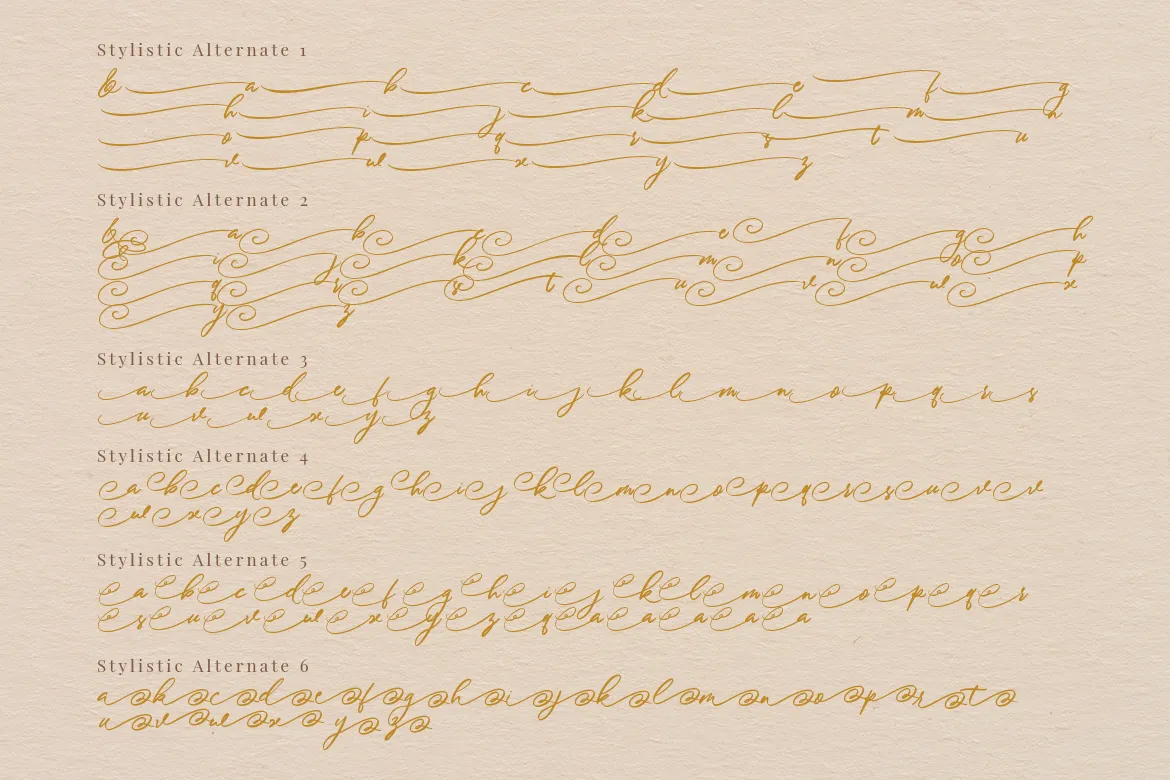 Stylistic Alternate 1
b a b c d e f g
h i j k l m n
o p q r s t u
v w x y z
Stylistic Alternate 2
b a b c d e f g h
i j k l m n o p
q r s t u v w x
y z
Stylistic Alternate 3
a b c d e f g h i j k l m n o p q r s
u v w x y z
Stylistic Alternate 4
a b c d e f g h i j k l m n o p q r s u v v
w x y z
Stylistic Alternate 5
a b c d e f g h i j k l m n o p q r
s u v w x y z q a a a a a
Stylistic Alternate 6
a b c d e f g h i j k l m n o p r t
u v w x y z